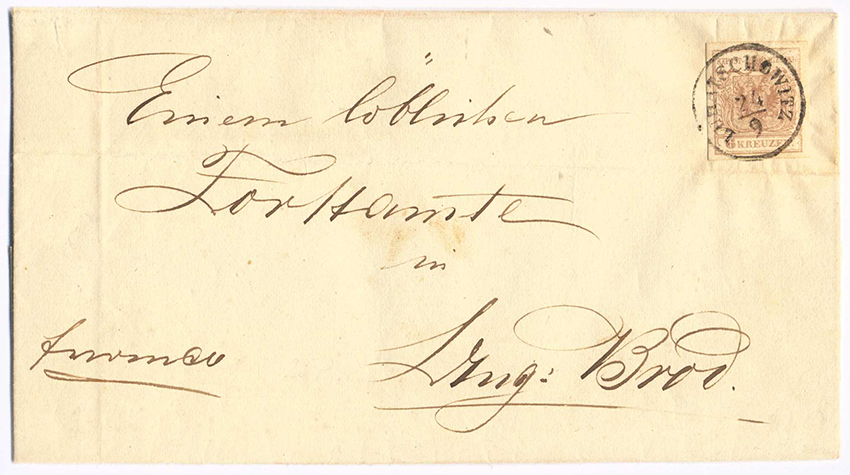 LUHATSCHOWITZ
24/9
6 KREUZER
Einem löblichen
Forstamte
in
Ung: Brod.
franco